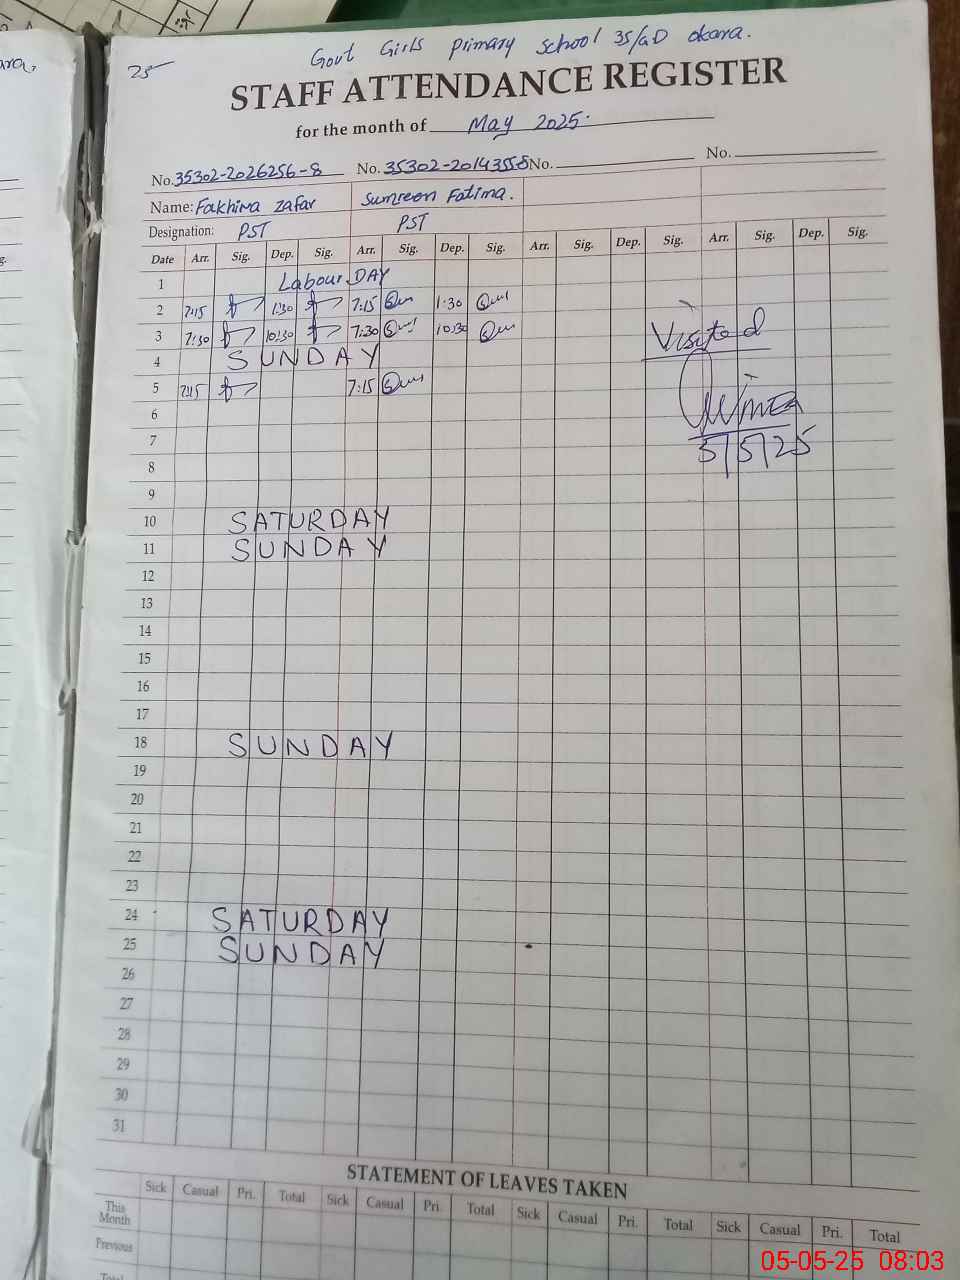 Govt Girls Primary School 35/GD Okara.
25
STAFF ATTENDANCE REGISTER
for the month of May 2025.
No. 35302-2026256-8 No. 35302-2014355-8 No. No.
Name: Fakhira Zafar Sumreen Fatima.
Designation: PST PST
Date Arr. Sig. Dep. Sig. Arr. Sig. Dep. Sig. Arr. Sig. Dep. Sig. Arr. Sig. Dep. Sig.
1 Labour DAY
2 7:15 1:30 7:15 1:30
3 7:30 10:30 7:30 10:30
Visited
4 SUNDAY
5 7:15 7:15
6
7
5/5/25
8
9
10 SATURDAY
11 SUNDAY
12
13
14
15
16
17
18 SUNDAY
19
20
21
22
23
24 SATURDAY
25 SUNDAY
26
27
28
29
30
31
STATEMENT OF LEAVES TAKEN
Sick Casual Pri. Total Sick Casual Pri. Total Sick Casual Pri. Total Sick Casual Pri. Total
This
Month
Previous
Total
05-05-25 08:03